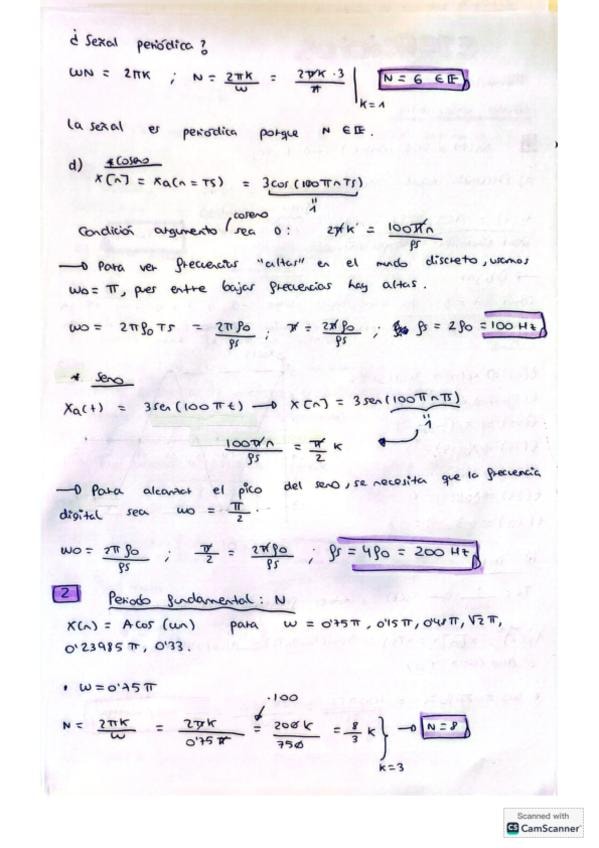 ¿ Señal periódica?
WN = 2πK ; N = 2πK / W = 2πK · 3 / π | K=1 N = 6 ∈ E
la señal es periódica porque N ∈ E.
d) * coseno
X[n] = Xa(n = TS) = 3cos(100πnTS)
1
Condición argumento coseno sea 0: 2πK = 100πn / fs
→ Para ver frecuencias "altas" en el mundo discreto, usamos
wo = π, pues entre bajas frecuencias hay altas.
wo = 2πfo TS = 2πfo / fs ; π = 2πfo / fs ; fs = 2fo = 100 Hz
* Seno
Xa(t) = 3sen(100πt) → X[n] = 3sen(100πnTS)
1
100πn / fs = π / 2 K
→ Para alcanzar el pico del seno, se necesita que la frecuencia
digital sea wo = π / 2.
wo = 2πfo / fs ; π / 2 = 2πfo / fs ; fs = 4fo = 200 Hz
2 Periodo fundamental: N
X(n) = Acos(wn) para w = 0'75π, 0'15π, 0'48π, √2π,
0'23985π, 0'33.
• W = 0'75π
·100
N = 2πK / W = 2πK / 0'75π = 200K / 750 = 8 / 3 K } → N = 8
K=3
Scanned with
CS CamScanner